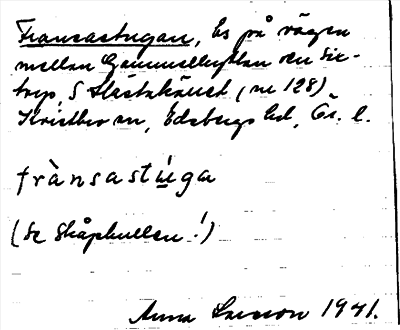 Fransastugan, ls på vägen
mellan Gammelhyttan och Six-
torp, S Hästskärret (nr 128)
Kristbr sn, Edsbergs hd, Ör. l.
frànsastúga
(Se Skåpkullen!)
Anna Larsson 1941.